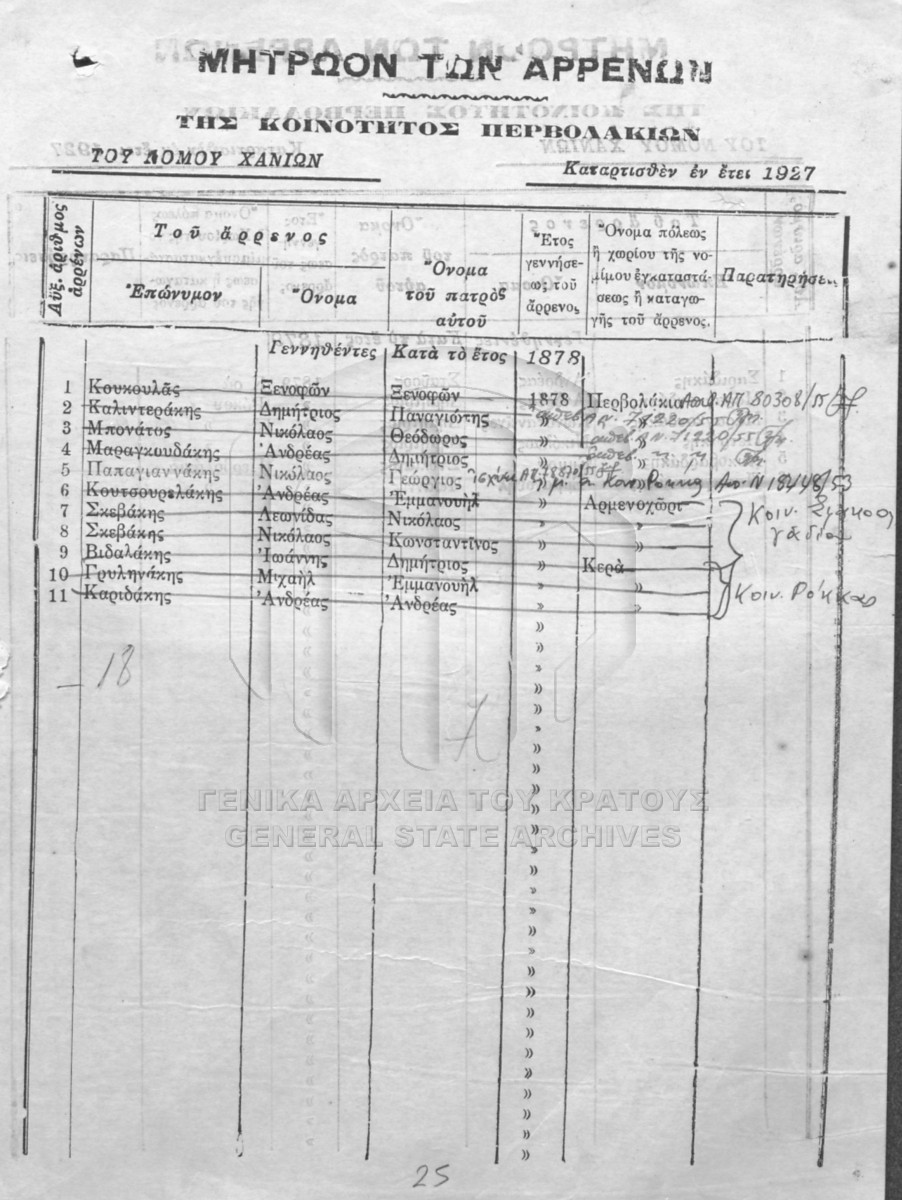 ΜΗΤΡΩΟΝ ΤΩΝ ΑΡΡΕΝΩΝ
ΤΗΣ ΚΟΙΝΟΤΗΤΟΣ ΠΕΡΒΟΛΑΚΙΩΝ
ΤΟΥ ΝΟΜΟΥ ΧΑΝΙΩΝ
Καταρτισθὲν ἐν ἔτει 1927
Αὔξ. ἀριθμος ἀρρένων
Τοῦ ἄρρενος
Ἐπώνυμον
Ὄνομα
Ὄνομα
τοῦ πατρὸς
αὐτοῦ
Ἔτος
γεννήσε-
ως τοῦ
ἄρρενος
Ὄνομα πόλεως
ἢ χωρίου τῆς νο-
μίμου ἐγκαταστά-
σεως ἢ καταγω-
γῆς τοῦ ἄρρενος.
Παρατηρήσε
Γεννηθέντες Κατὰ τὸ ἔτος 1878
1 Κουκουλᾶς Ξενοφῶν Ξενοφῶν 1878 Περβολάκια ΑΠ. 80308/55
2 Καλιντεράκης Δημήτριος Παναγιώτης » » 71220/55
3 Μπονάτος Νικόλαος Θεόδωρος » » 71220/55
4 Μαραγκουδάκης Ἀνδρέας Δημήτριος » »
5 Παπαγιαννάκης Νικόλαος Γεώργιος » » 18448/53
6 Κουτσουρελάκης Ἀνδρέας Ἐμμανουὴλ » Ἀρμενοχῶρι
7 Σκεβάκης Λεωνίδας Νικόλαος » »
8 Σκεβάκης Νικόλαος Κωνσταντῖνος » »
9 Βιδαλάκης Ἰωάννης Δημήτριος » Κερὰ
10 Γρυληνάκης Μιχαὴλ Ἐμμανουὴλ » »
11 Καριδάκης Ἀνδρέας Ἀνδρέας » »
Κοιν.
Κοιν. Ρόκκας
18
7
ΓΕΝΙΚΑ ΑΡΧΕΙΑ ΤΟΥ ΚΡΑΤΟΥΣ
GENERAL STATE ARCHIVES
25